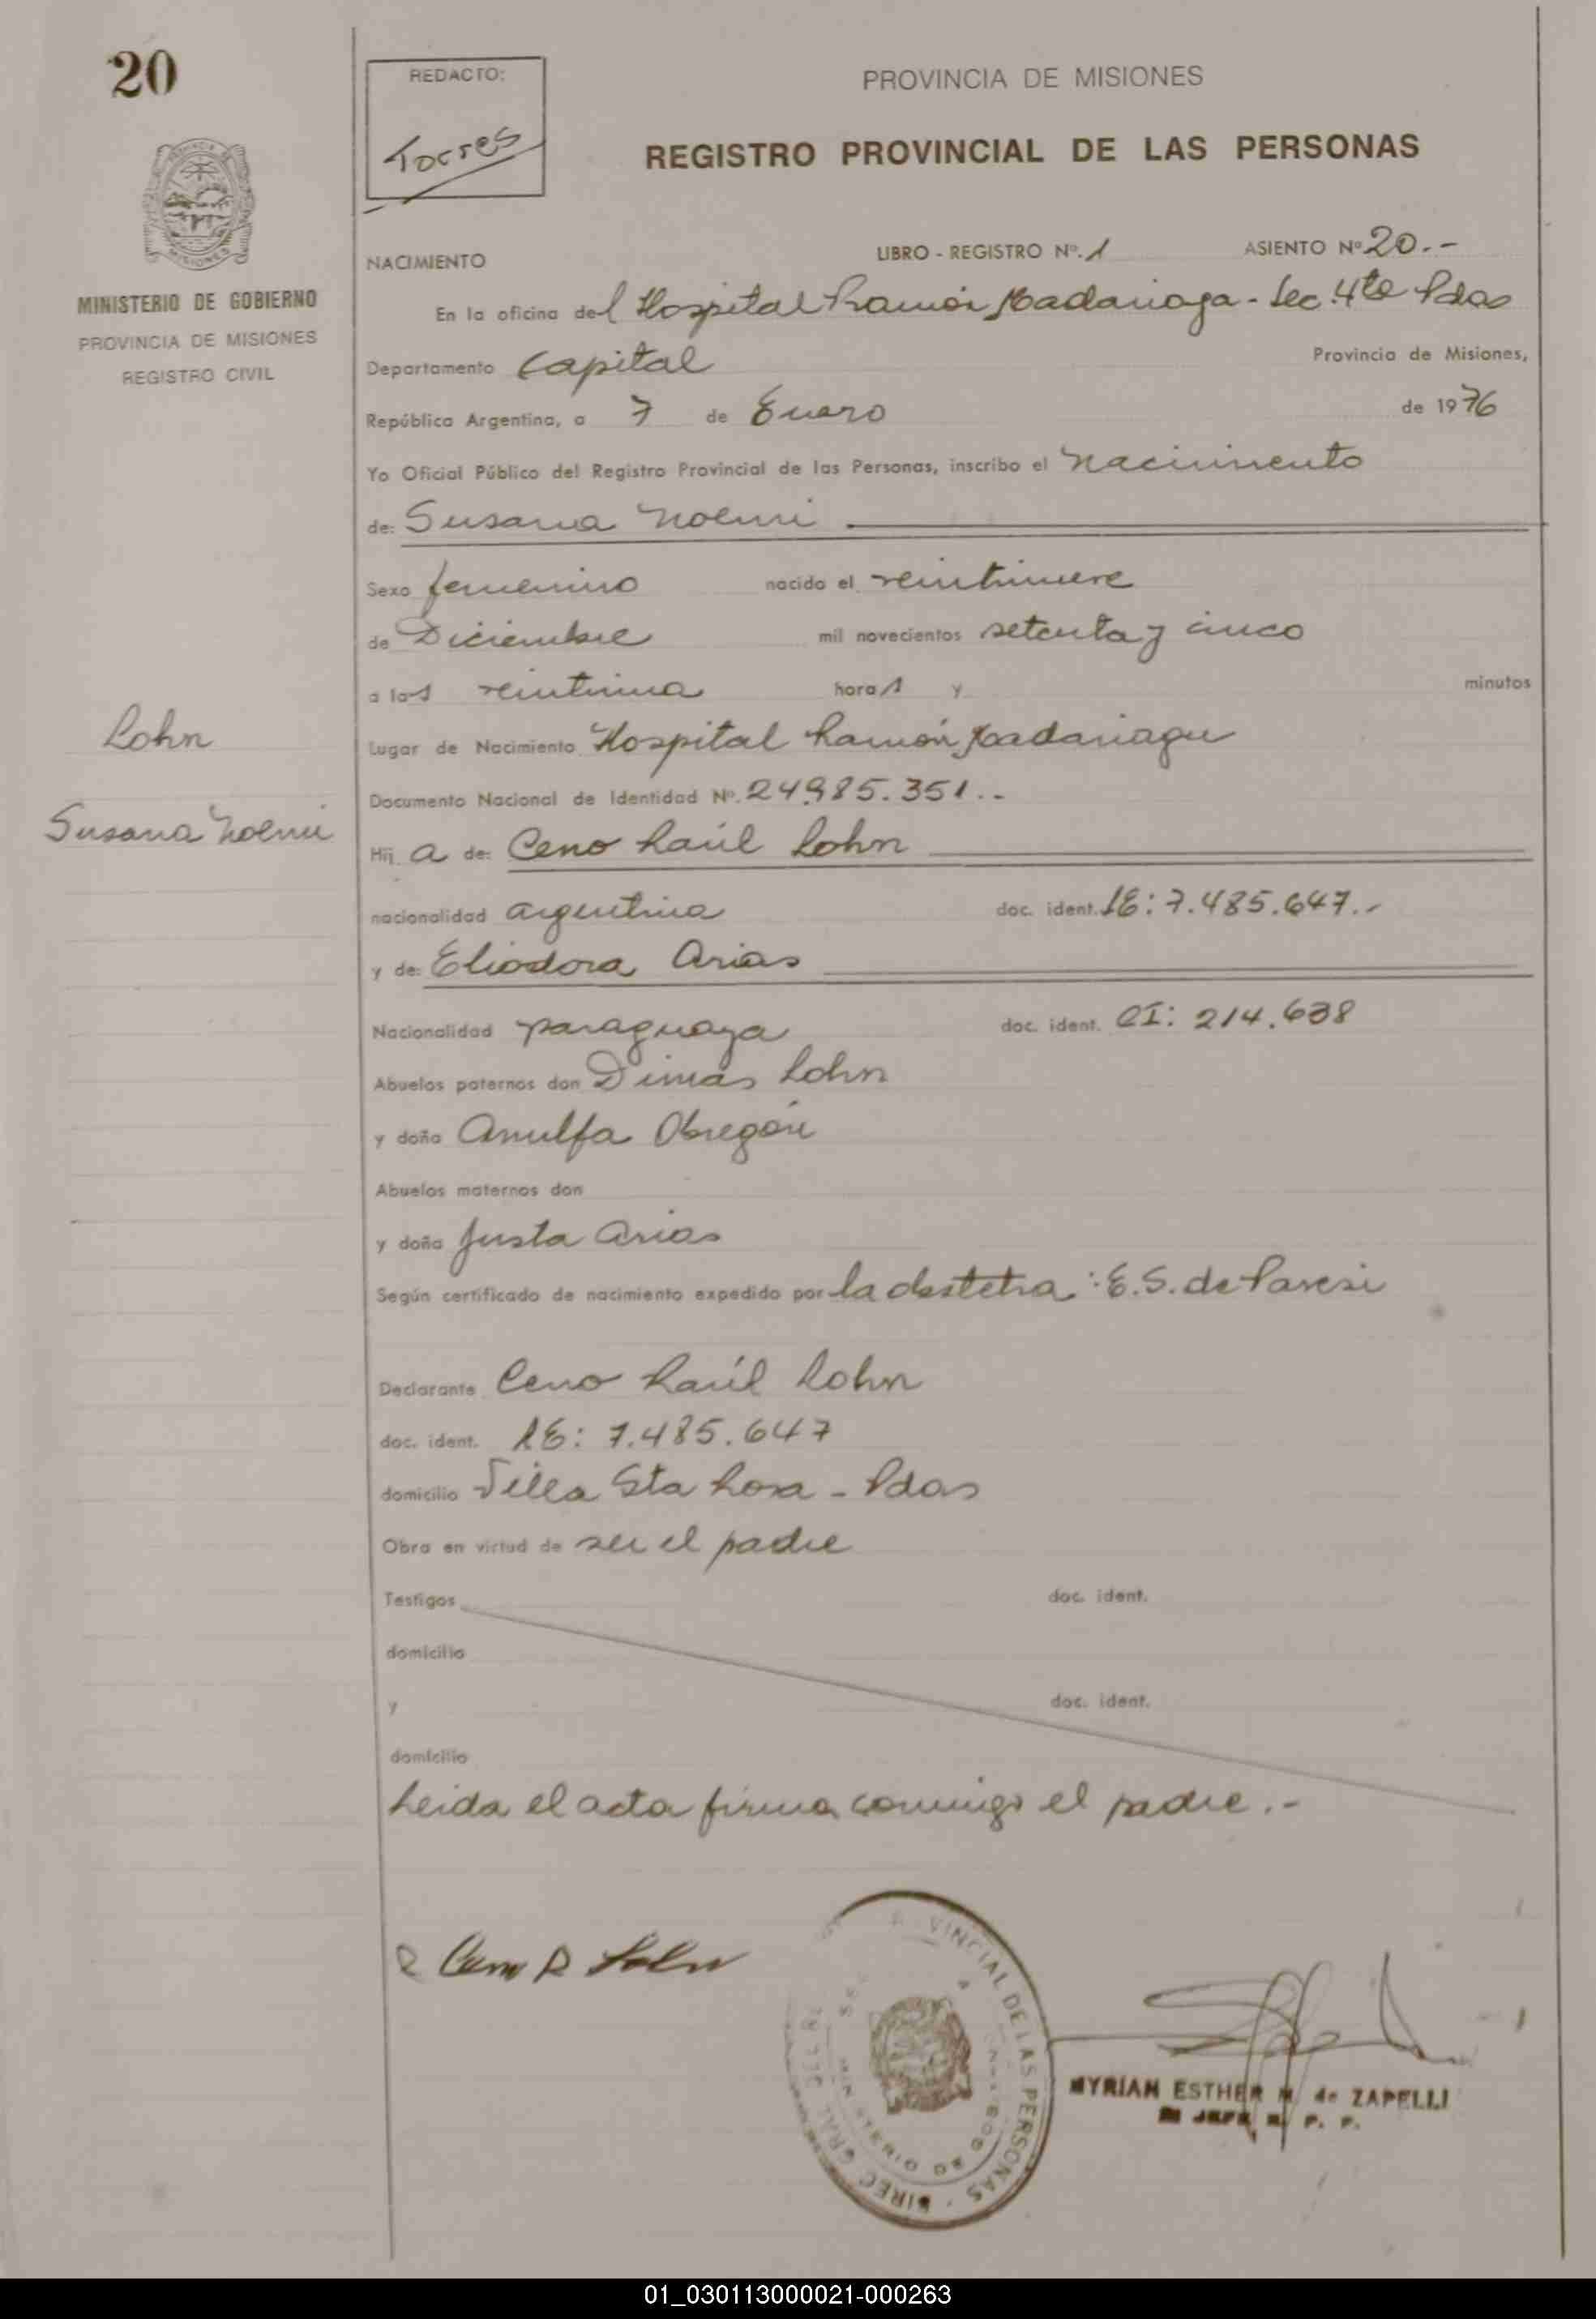 20
REDACTO:
Torres
PROVINCIA DE MISIONES
REGISTRO PROVINCIAL DE LAS PERSONAS
MINISTERIO DE GOBIERNO
PROVINCIA DE MISIONES
REGISTRO CIVIL
NACIMIENTO LIBRO - REGISTRO Nº. 1 ASIENTO Nº 20.-
En la oficina del Hospital Ramón Madariaga - Sec. 4ta Pdas
Departamento Capital Provincia de Misiones,
República Argentina, a 7 de Enero de 1976
Yo Oficial Público del Registro Provincial de las Personas, inscribo el nacimiento
de: Susana Noemi
Sexo femenino nacido el veintinueve
de Diciembre mil novecientos setenta y cinco
a las veintiuna horas y minutos
Lohn
Lugar de Nacimiento Hospital Ramón Madariaga
Documento Nacional de Identidad Nº. 24.985.351.-
Susana Noemi
Hij a de: Ceno Raúl Lohn
nacionalidad argentina doc. ident. LE: 7.485.647.-
y de: Eliodora Arias
Nacionalidad paraguaya doc. ident. CI: 214.638
Abuelos paternos don Dimas Lohn
y doña Arnulfa Obregón
Abuelos maternos don
y doña Justa Arias
Según certificado de nacimiento expedido por la obstetra: E.S. de Paresi
Declarante Ceno Raúl Lohn
doc. ident. LE: 7.485.647
domicilio Villa Sta Rosa - Pdas
Obra en virtud de ser el padre
Testigos doc. ident.
domicilio
y doc. ident.
domicilio
Leida el acta firma conmigo el padre.-
Ceno R Lohn
VINCIAL DE LAS PERSONAS - DIREC GRAL DEL
MINISTERIO DE GOBIERNO
MYRIAN ESTHER de ZAPELLI
JEFE R. P. P.
01_030113000021-000263